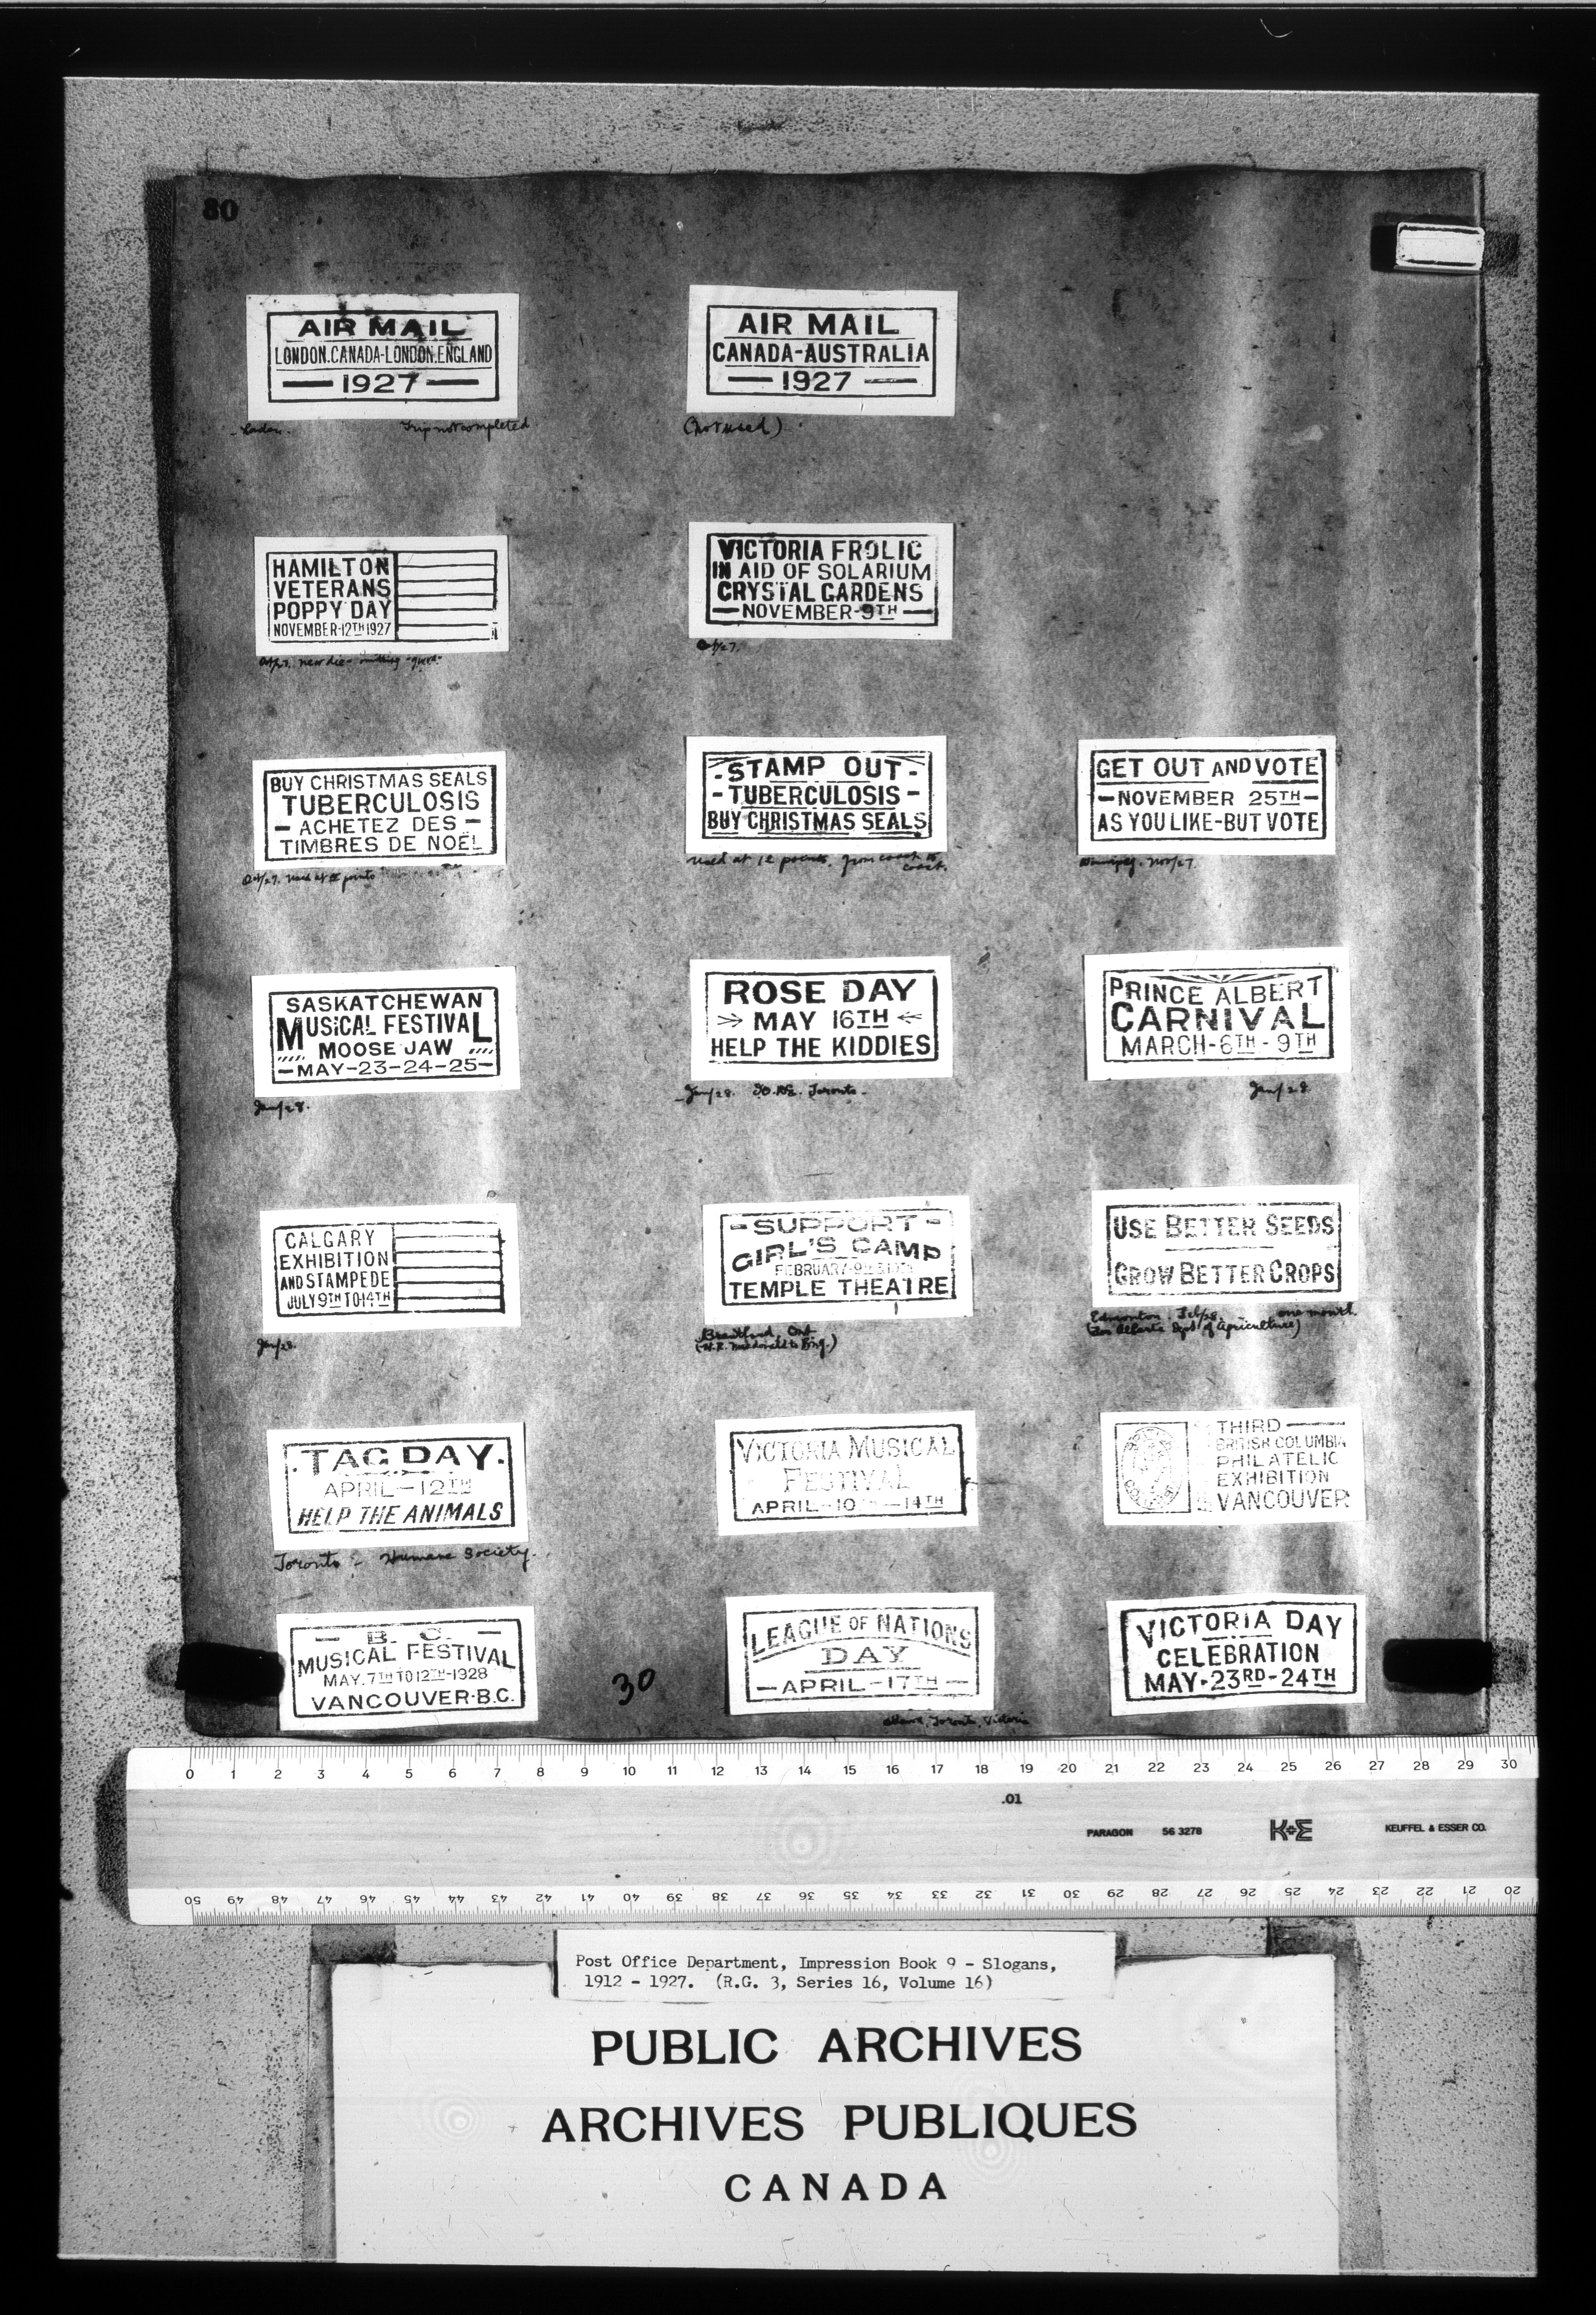 80
AIR MAIL
LONDON.CANADA-LONDON.ENGLAND
1927
Trip not completed
AIR MAIL
CANADA-AUSTRALIA
1927
(not used)
HAMILTON
VETERANS
POPPY DAY
NOVEMBER-12TH 1927
VICTORIA FROLIC
IN AID OF SOLARIUM
CRYSTAL GARDENS
NOVEMBER-9TH
Oct/27.
BUY CHRISTMAS SEALS
TUBERCULOSIS
- ACHETEZ DES -
TIMBRES DE NOËL
Oct/27. Used at points
- STAMP OUT -
- TUBERCULOSIS -
BUY CHRISTMAS SEALS
Used at 12 points, from coast to
coast.
GET OUT AND VOTE
- NOVEMBER 25TH -
AS YOU LIKE-BUT VOTE
Winnipeg. Nov/27.
SASKATCHEWAN
MUSICAL FESTIVAL
MOOSE JAW
- MAY-23-24-25 -
Jan/28.
ROSE DAY
MAY 16TH
HELP THE KIDDIES
Jan/28. I.O.D.E. Toronto -
PRINCE ALBERT
CARNIVAL
MARCH-6TH-9TH
Jan/28
CALGARY
EXHIBITION
AND STAMPEDE
JULY 9TH TO 14TH
Jan/28.
- SUPPORT -
GIRL'S CAMP
FEBRUARY-9TH & 10TH
TEMPLE THEATRE
Brantford, Ont.
USE BETTER SEEDS
GROW BETTER CROPS
Edmonton Feb/28. one month.
(For Alberta Dept of Agriculture)
.TAG DAY.
APRIL-12TH
HELP THE ANIMALS
Toronto - Humane Society.
VICTORIA MUSICAL
FESTIVAL
APRIL-10TH-14TH
THIRD
BRITISH COLUMBIA
PHILATELIC
EXHIBITION
VANCOUVER
- B. C. -
MUSICAL FESTIVAL
MAY. 7TH TO 12TH-1928
VANCOUVER-B.C.
30
LEAGUE OF NATIONS
DAY
- APRIL-17TH -
Ottawa, Toronto, Victoria
VICTORIA DAY
CELEBRATION
MAY-23RD-24TH
0 1 2 3 4 5 6 7 8 9 10 11 12 13 14 15 16 17 18 19 20 21 22 23 24 25 26 27 28 29 30
.01
PARAGON 56 3278 K+E KEUFFEL & ESSER CO.
50 49 48 47 46 45 44 43 42 41 40 39 38 37 36 35 34 33 32 31 30 29 28 27 26 25 24 23 22 21 20
Post Office Department, Impression Book 9 - Slogans,
1912 - 1927. (R.G. 3, Series 16, Volume 16)
PUBLIC ARCHIVES
ARCHIVES PUBLIQUES
CANADA